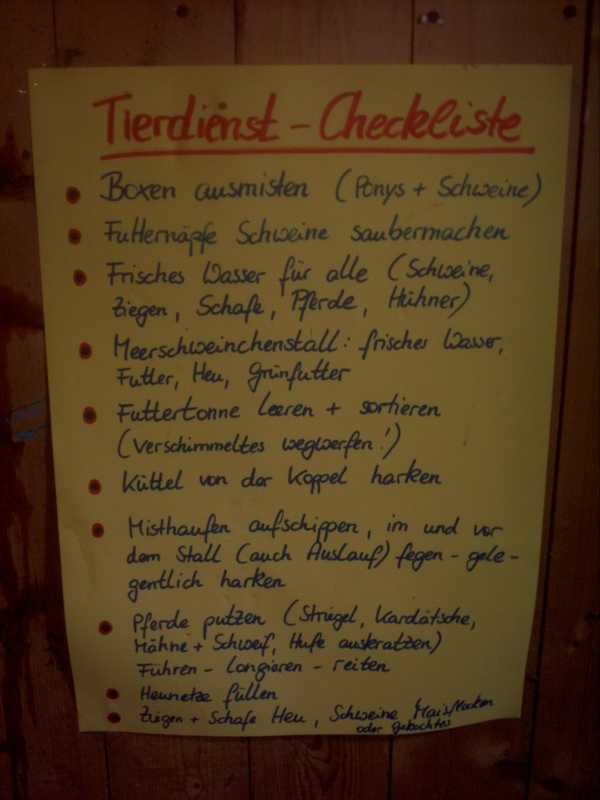 Tierdienst - Checkliste
• Boxen ausmisten (Ponys + Schweine)
• Futternäpfe Schweine saubermachen
• Frisches Wasser für alle (Schweine,
Ziegen, Schafe, Pferde, Hühner)
• Meerschweinchenstall: frisches Wasser,
Futter, Heu, Grünfutter
• Futtertonne leeren + sortieren
(Verschimmeltes wegwerfen!)
• Küttel von der Koppel harken
• Misthaufen aufschippen, im und vor
dem Stall (auch Auslauf) fegen - gele-
gentlich harken
• Pferde putzen (Striegel, Kardätsche,
Mähne + Schweif, Hufe auskratzen)
Führen - Longieren - reiten
• Heunetze füllen
• Ziegen + Schafe Heu, Schweine Maisflocken
oder gekochtes